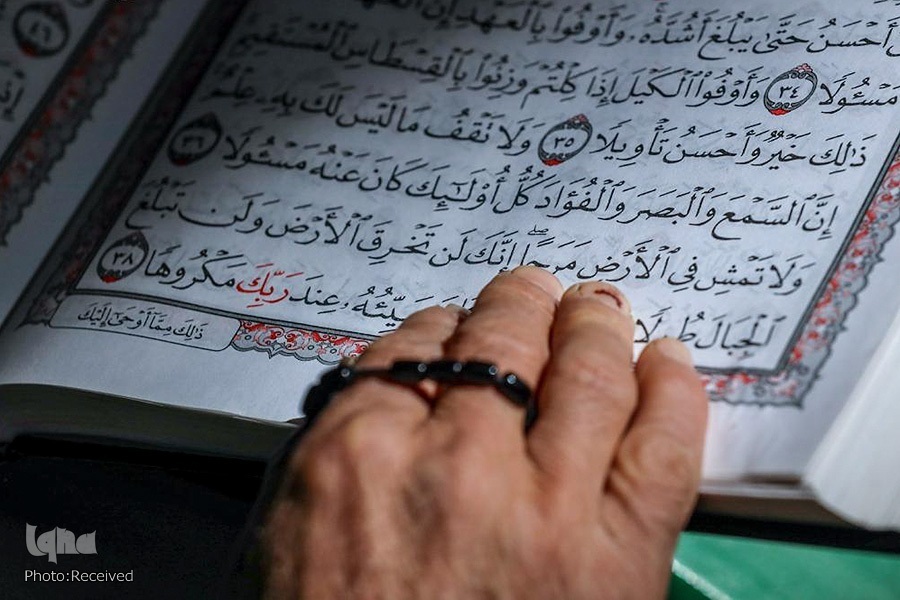 أَحْسَنُ حَتَّىٰ يَبْلُغَ أَشُدَّهُۥ وَأَوْفُوا۟ بِٱلْعَهْدِ إِنَّ
مَسْـُٔولًا ٣٤ وَأَوْفُوا۟ ٱلْكَيْلَ إِذَا كِلْتُمْ وَزِنُوا۟ بِٱلْقِسْطَاسِ ٱلْمُسْتَقِيمِ
ذَٰلِكَ خَيْرٌ وَأَحْسَنُ تَأْوِيلًا ٣٥ وَلَا تَقْفُ مَا لَيْسَ لَكَ بِهِۦ عِلْمٌ
إِنَّ ٱلسَّمْعَ وَٱلْبَصَرَ وَٱلْفُؤَادَ كُلُّ أُو۟لَٰٓئِكَ كَانَ عَنْهُ مَسْـُٔولًا ٣٦
وَلَا تَمْشِ فِى ٱلْأَرْضِ مَرَحًا ۖ إِنَّكَ لَن تَخْرِقَ ٱلْأَرْضَ وَلَن تَبْلُغَ
ٱلْجِبَالَ طُولًا سَيِّئُهُۥ عِندَ رَبِّكَ مَكْرُوهًا ٣٨
ذَٰلِكَ مِمَّآ أَوْحَىٰٓ إِلَيْكَ
iqna
Photo:Received